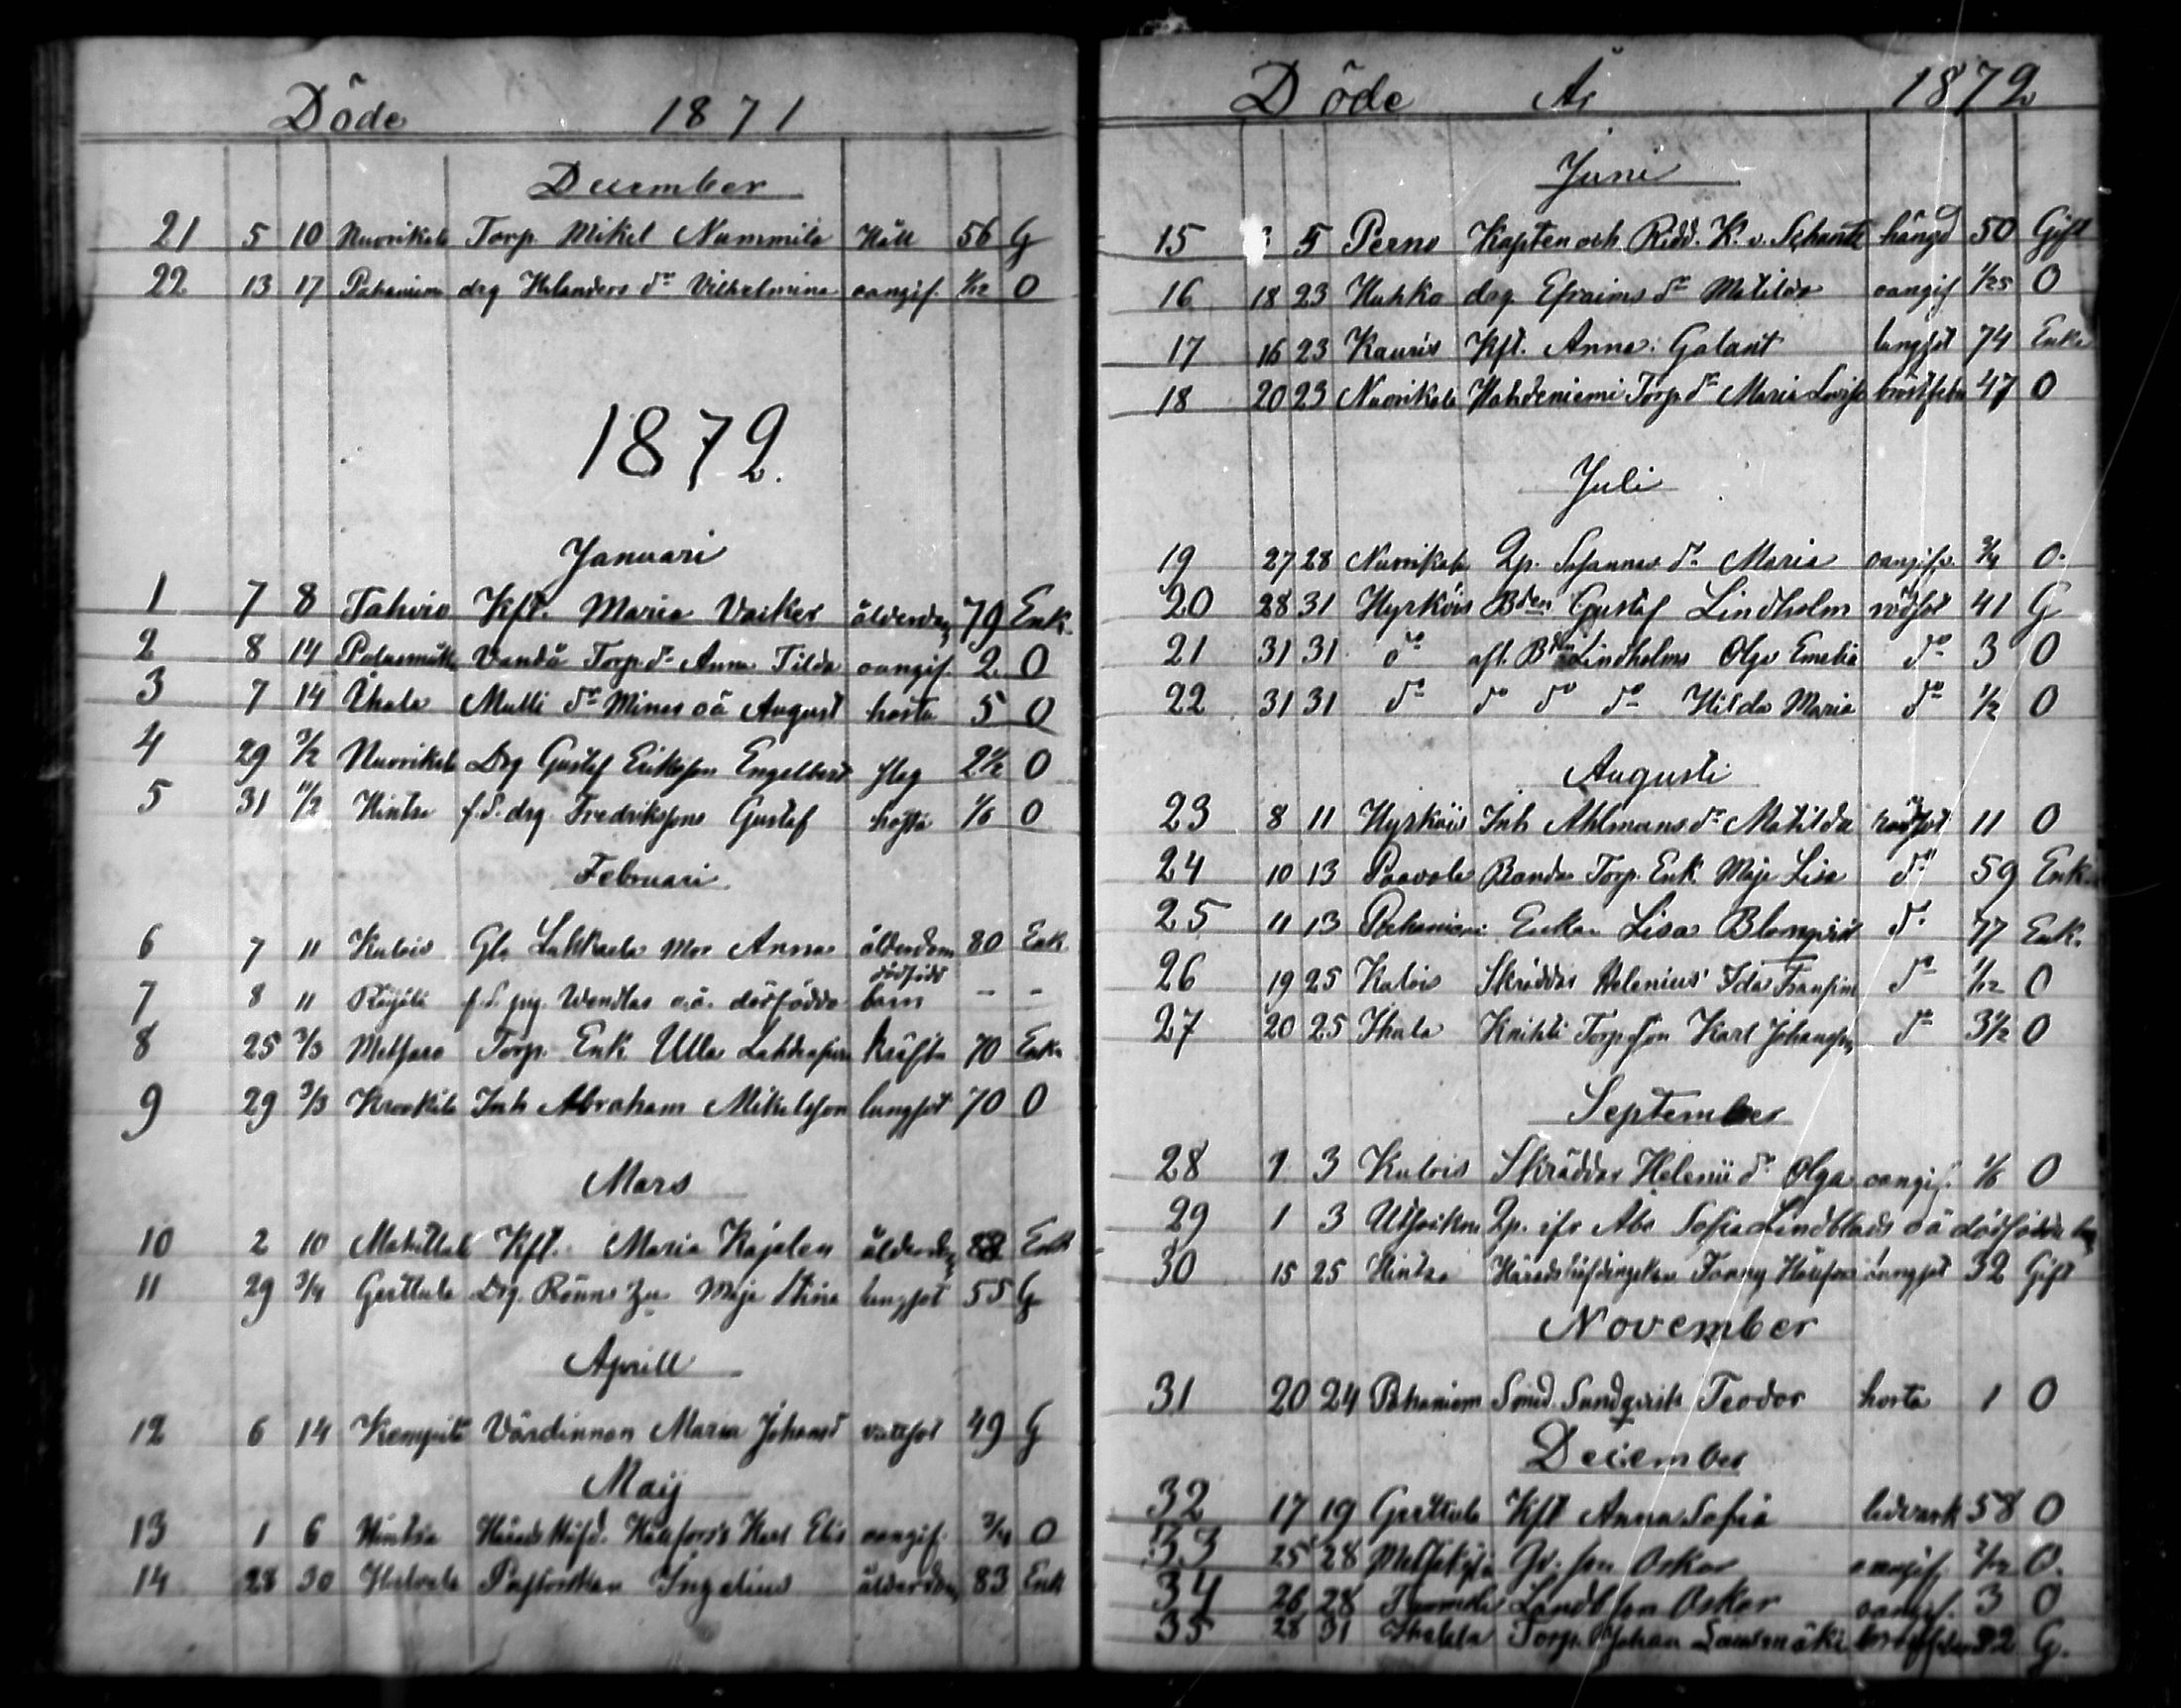 Döde 1871
December
21 5 10 Nuorikala Torp. Mikel Nummila Håll 56 G
22 13 17 Pahaniemi drg Helanders dr Vilhelmina oangif. 1/12 O
1872.
Januari
1 7 8 Tahvio Kfl. Maria Vacker ålderdom 79 Enk.
2 8 14 Vandå Torp. dr Anna Tilda oangif. 2 O
3 7 14 Ihala Mulli dr Minas oä August hosta 5 O
4 29 3/2 Nuorikala Drg Gustaf Eriksson Engelbert slag 2 1/2 O
5 31 11/2 Hintsa f.d. drg Fredrikssons Gustaf hosta 1/6 O
Februari
6 7 11 Kulois Gla Lahkaela Mor Anna ålderdom 80 Enk
7 8 11 f.d. pig. Wendlas o.ä. dödfödda dödfödt barn - -
8 25 3/3 Torp. Enk Ulla kräfta 70 Enk.
9 29 3/3 Krookila Inh Abraham Mikelsson lungsot 70 O
Mars
10 2 10 Kfl. Maria Kajelen ålderdom 88 Enk
11 29 3/4 Grettula Drg. Rönns hu Maja Stina lungsot 55 G
Aprill
12 6 14 Kempila Värdinnan Maria Johansd vattsot 49 G
Maij
13 1 6 Hintsa Härads Höfd. Hållfors's Karl Elis oangif. 3/4 O
14 28 30 Pastorskan Ingelius ålderdom 83 Enk
Döde År 1872
Juni
15 5 Perno Kapten och Ridd. K. v. Schantz hängd 50 Gift
16 18 23 Huhko drg. Efraims dr Matilda oangif 1/25 O
17 16 23 Kauris Kfl. Anna Galant lungsot 74 Enka
18 20 23 Nuorikala Hahdeniemi Torp. dr Maria Lovisa bröstfeber 47 O
Juli
19 27 28 Nuorikala Lp. Johannes dr Maria oangifv. 3/4 O.
20 28 31 Hyrköis Bden Gustaf Lindholm rödsot 41 G
21 31 31 do afl. Bden Lindholms Olga Emelia do 3 O
22 31 31 do do do do Hilda Maria do 1/2 O
Augusti
23 8 11 Hyrköis Inh Ahlmans dr Matilda rödsot 11 O
24 10 13 Paavola Banda Torp. Enk. Maja Lisa do 59 Enk.
25 11 13 Pahaniemi Enkan Lisa Blomqvist do 77 Enk.
26 19 25 Kulois Skräddar Helenius' Ida Fransina do 1/12 O
27 20 25 Ihala Knihti Torp. son Karl Johansson do 3 1/2 O
September
28 1 3 Kulois Skräddar Helenii dr Olga oangif. 1/6 O
29 1 3 Lp. ifr Åbo Sofia Lindblads oä dödfödda barn
30 15 25 Hintsa Häradshöfdingskan Fanny Hållfors lungsot 32 Gift
November
31 20 24 Pahaniem Smed. Sundqvists Teodor hosta 1 O
December
32 17 19 Grettula Kfl Anna Sofia ledvärk 58 O
33 25 28 son Oskar oangif. 2/12 O.
34 26 28 Landb son Oskar oangif. 3 O
35 28 31 Ihala Torp. Johan Lausmäki bröstfeber 32 G.